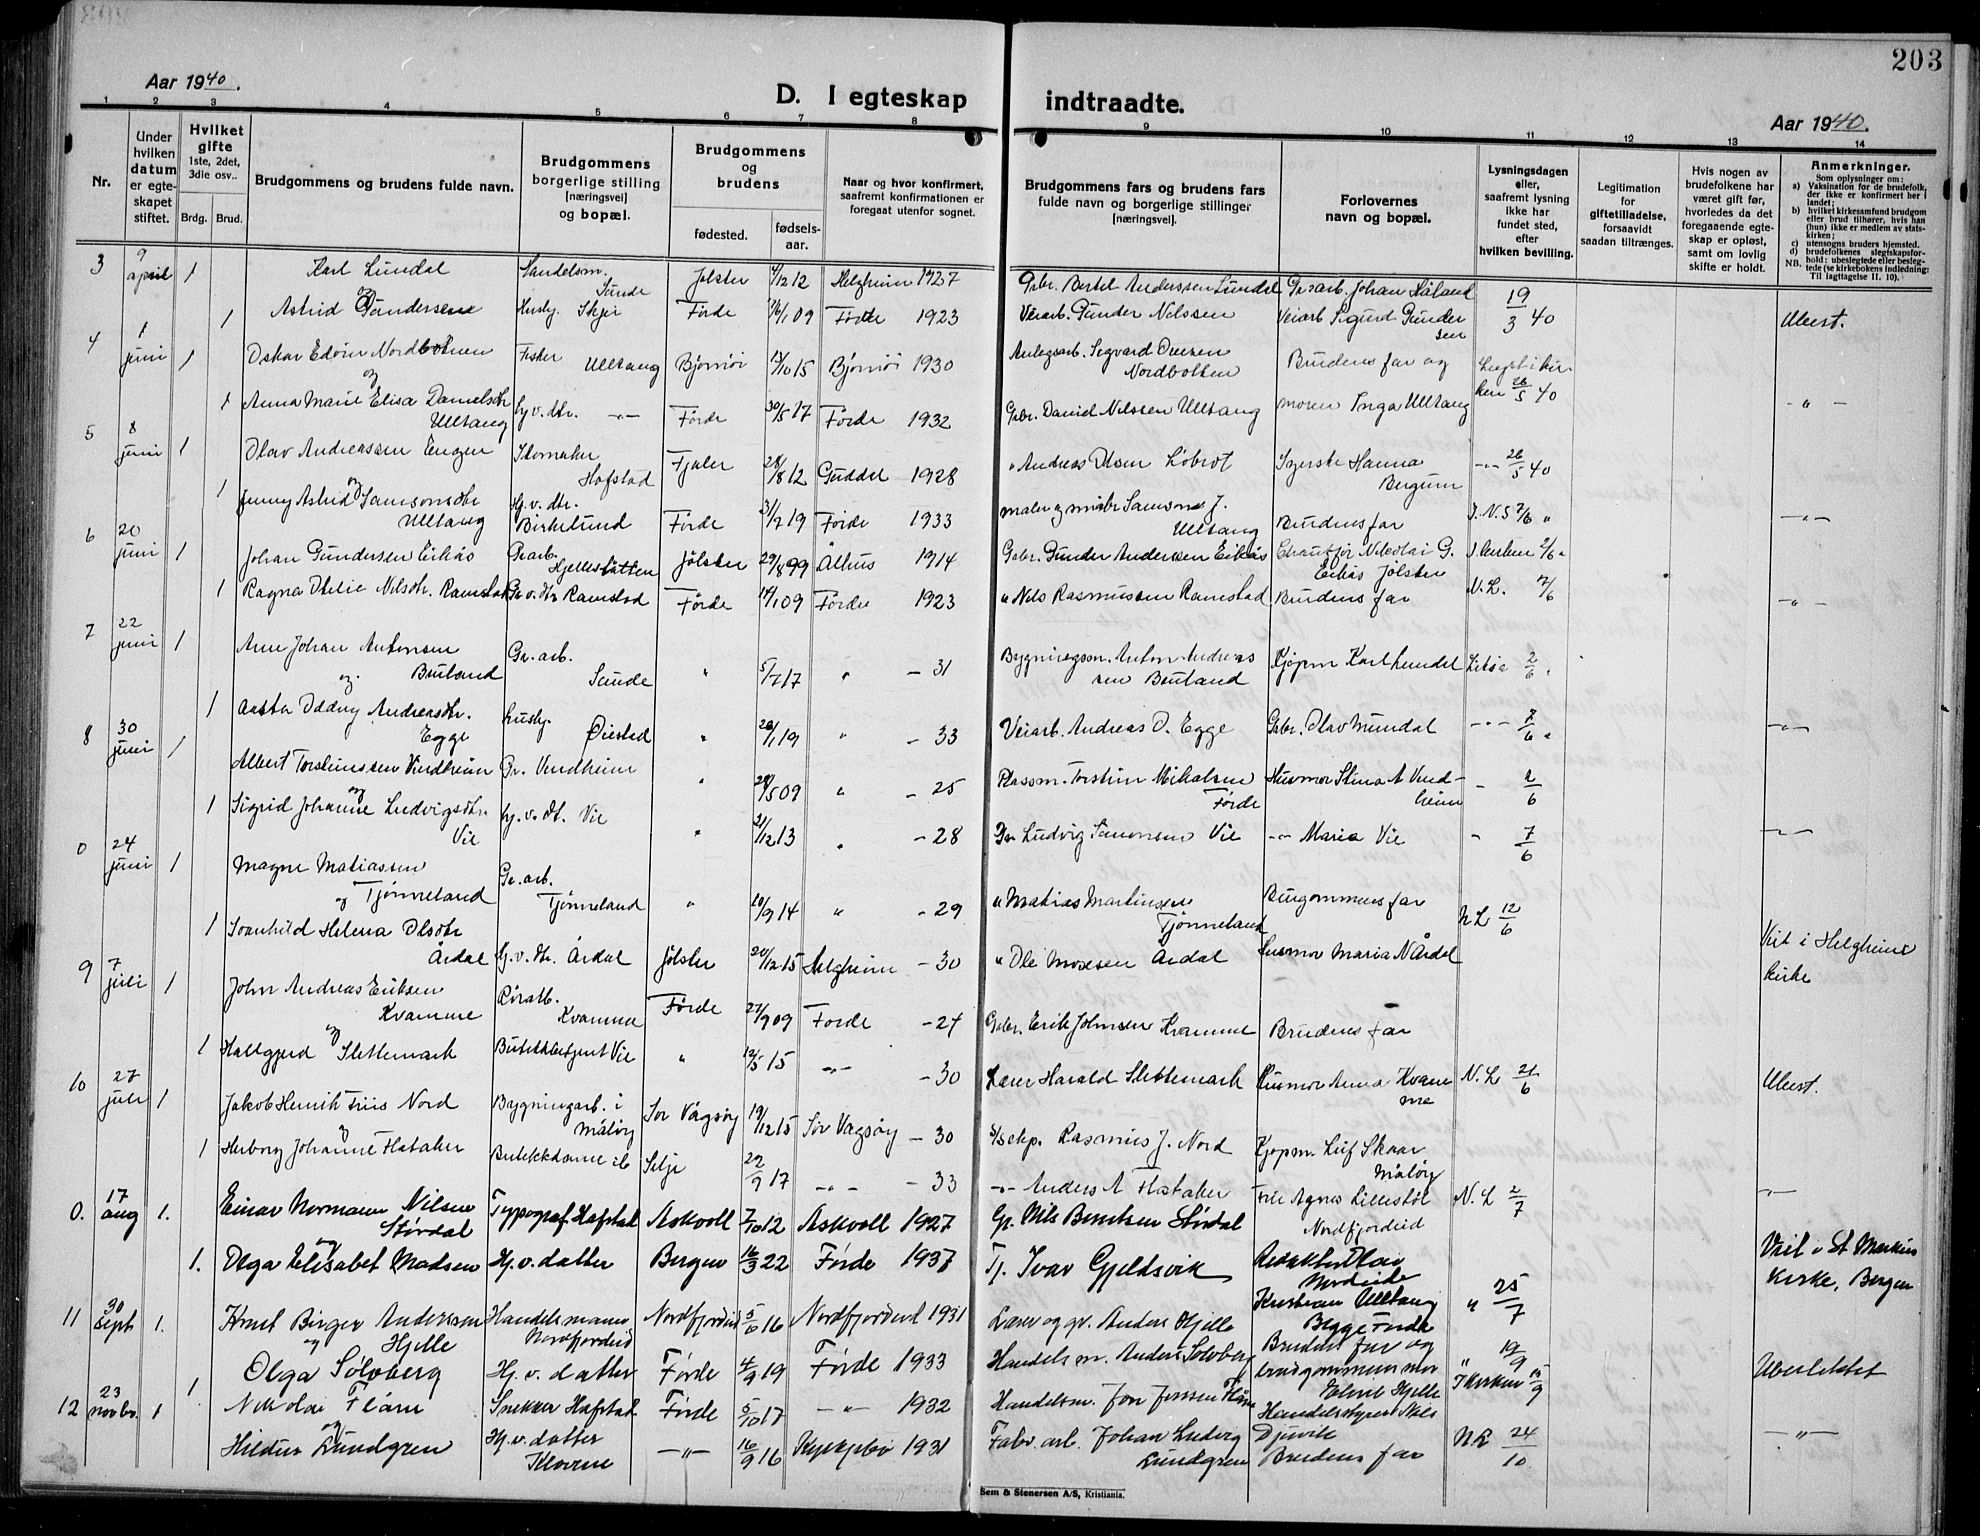 203
Aar 1940.
D. I egteskap indtraadte.
Aar 1940.
1 2 3 4 5 6 7 8 9 10 11 12 13 14
Nr.
Under hvilken datum er egteskapet stiftet.
Hvilket gifte 1ste, 2det, 3die osv..
Brdg. Brud.
Brudgommens og brudens fulde navn.
Brudgommens borgerlige stilling [næringsvei] og bopæl.
Brudgommens og brudens
fødested. fødselsaar.
Naar og hvor konfirmert, saafremt konfirmationen er foregaat utenfor sognet.
Brudgommens fars og brudens fars fulde navn og borgerlige stillinger [næringsvei].
Forlovernes navn og bopæl.
Lysningsdagen eller, saafremt lysning ikke har fundet sted, efter hvilken bevilling.
Legitimation for giftetilladelse, forsaavidt saadan tiltrænges.
Hvis nogen av brudefolkene har været gift før, hvorledes da det foregaaende egteskap er opløst, samt om lovlig skifte er holdt.
Anmerkninger.
Som oplysninger om:
a) Vaksination før de brudefolk, der ikke er konfirmert her i landet;
b) hvilket kirkesamfund brudgom eller brud tilhører, hvis han (hun) ikke er medlem av statskirken;
c) utensogns bruders hjemsted.
d) brudefolkenes slegtskapsforhold: ubeslegtede eller beslegtede (se kirkebokens indledning: Til iagttagelse II. 10).
NB.
3 9 april 1 Karl Lundal Handelsm. Sunde Jølster 4/12 12 Helgheim 1927 Gbr. Bertel Anderssen Lundal Gr.arb. Johan Håland 19/3 40
og
1 Astrid Gundersen Husby. Skjer Førde 1 09 Førde 1923 Veiarb. Gunder Nilssen Veiarb Sigurd Gundersen Ubest.
4 1 juni 1 Oskar Edvin Nordbotnen Fisker Ulltang Bjørnør 13/10 15 Bjørnør 1930 Anlegsarb. Segvard Nordbotten Brudens far og
og
1 Anna Marie Elisa Danielsdtr Ulltang hj v. dtr. -"- Førde 30/5 17 Førde 1932 Gbr. Daniel Nilssen Ulltang moren Inga Ulltang 26/5 40 -"-
5 8 juni 1 Olav Andreassen Engen Skomaker Hafstad Fjaler 28/8 12 Guddal 1928 " Andreas Olsen Syerske Hanna Bergum -"- 26/5 40
og
1 Jenny Astrid Samsonsdtr Ulltang Hj. v. dtr. Birkelund Førde 31/7 19 Førde 1933 maler og Samson J. Ulltang Brudens far -"-
6 20 juni 1 Johan Gundersen Eikås Gr.arb. Hjellestatten Jølster 29/8 99 Ålhus 1914 Gbr. Gunder Andersen Eikås Chauffør Nikolai G. Eikås Jølster 2/6
1 Ragna Otelie Nilsdtr. Ramstad Gr v. dtr Ramstad Førde 14/1 09 Førde 1923 " Nils Rasmussen Ramstad Brudens far N. L. 7/6 -"-
7 22 juni 1 Arne Johan Antonsen Bruland Gr. arb. Sunde " 17 " - 31 Bygningsm. Anton Andreassen Bruland Kjøpm Karl Lundal 2/6
og.
1 Aasta Oddny Andreasdtr. Egge Husby. Øiestad " 20/1 19 " - 33 Veiarb. Andreas D. Egge Gbr. Olav Mundal -"- 7/6 -"-
8 30 juni 1 Albert Torsteinssen Vindheim Gr. Vindheim " 5 09 " - 25 Plassm. Torstein Mikalsen Førde Husmor Stina A Vindheim - 2/6
og
1 Sigrid Johanne Ludvigsdtr. Vie hj. v. dt. Vie " 21/12 13 " - 28 Gr Ludvig Simonsen Vie -"- Maria Vie - 7/6 -"-
0 24 juni 1 Magne Matiassen Tjønneland Gr. arb. Tjønneland " 10/9 14 " - 29 " Matias Martinsen Tjønneland Brugommens far N L 12/6
og
1 Svanhild Helena Olsdtr Årdal hj. v. dtr. Årdal Jølster 20/12 15 Helgheim - 30 " Ole Mosesen Årdal Husmor Maria N Årdal Viet i Helgheim kirke
9 7 juli 1 John Andreas Eriksen Kvamme Rørarb. Kvamme Førde 27/9 09 Førde - 24 Gbr. Erik Johnsen Kvamme Brudens far
og
1 Hallgjerd Slettemark Butikkbetjent Vie " 12/5 15 -"- - 30 Lærer Harald Slettemark Husmor Anna Kvamme N. L 21/6 Ubest.
10 27 juli 1 Jakob Henrik Friis Nord Bygningarb. i Måløy Sør Vågsøy 19/12 15 Sør Vågsøy - 30 Rasmus J. Nord Kjøpm. Leif Skaar Måløy
og
1 Herborg Johanne Flataker Butikkdame ib Selje 22/9 17 -"- - 33 -"- Anders A Flataker Frk Agnes Lillestøl Nordfjordeid N. L 2/7 -"-
0. 17 aug 1. Einar Normann Nilsen Størdal Typograf Hafstad Askvoll 7/10 12 Askvoll 1927 Gr. Nils Berntsen Størdal Redaktør Olav Nordeide
og
1. Olga Elisabet Madsen Hj. v. datter Bergen 16/3 22 Førde 1937 Tj. Ivar Gjeldsvik Kristian Ulltang Begge Førde " 25/7 Viet i St Markus Kirke, Bergen
11 30 sept 1. Knut Birger Anderssen Hjelle Handelsmann Nordfjordeid Nordfjordeid 5/6 16 Nordfjordeid 1931 Lærer og gr. Anders Hjelle Brudens far og " 19/9
og
1 Olga Solvberg Hj. v. datter Førde 4/9 19 Førde 1933 Handelsm. Anders Solvberg brudgommens mor Eline Hjelle I kirken 15/9 Ubeslektet
12 23 novbr. 1 Nikolai Flåm Snekker Hafstad Førde 5/10 17 -"- 1932 Handelsm. Jon Jonssen Flåm Handelsstyrer Nils Djuvik
og
Hildur Lundgren Hj. v. datter Klovene -"- 16/9 16 Kyrkjebø 1931 Fabr. arb. Johan Ludvig Lundgren Brudens far N L 24/10 -"-
Sem & Stenersen A/S, Kristiania.